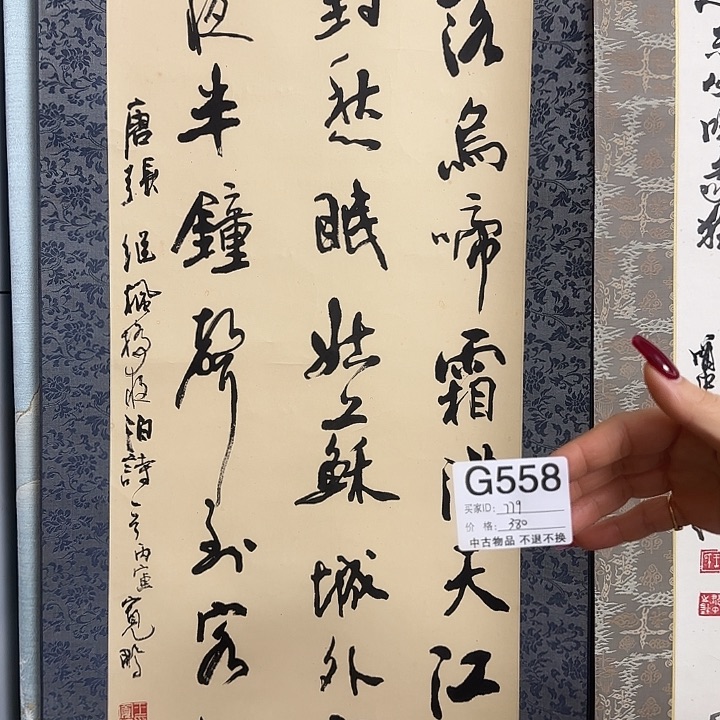 落烏啼霜滿天江
對愁眠姑蘇城外
夜半鐘聲到客
唐張繼楓橋夜泊詩一首丙寅寬鵬
G558
买家ID: 779
价 格: 380
中古物品 不退不换